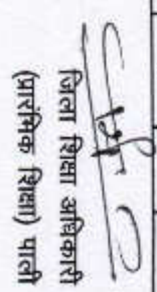 जिला शिक्षा अधिकारी
(प्रारंभिक शिक्षा) पाली